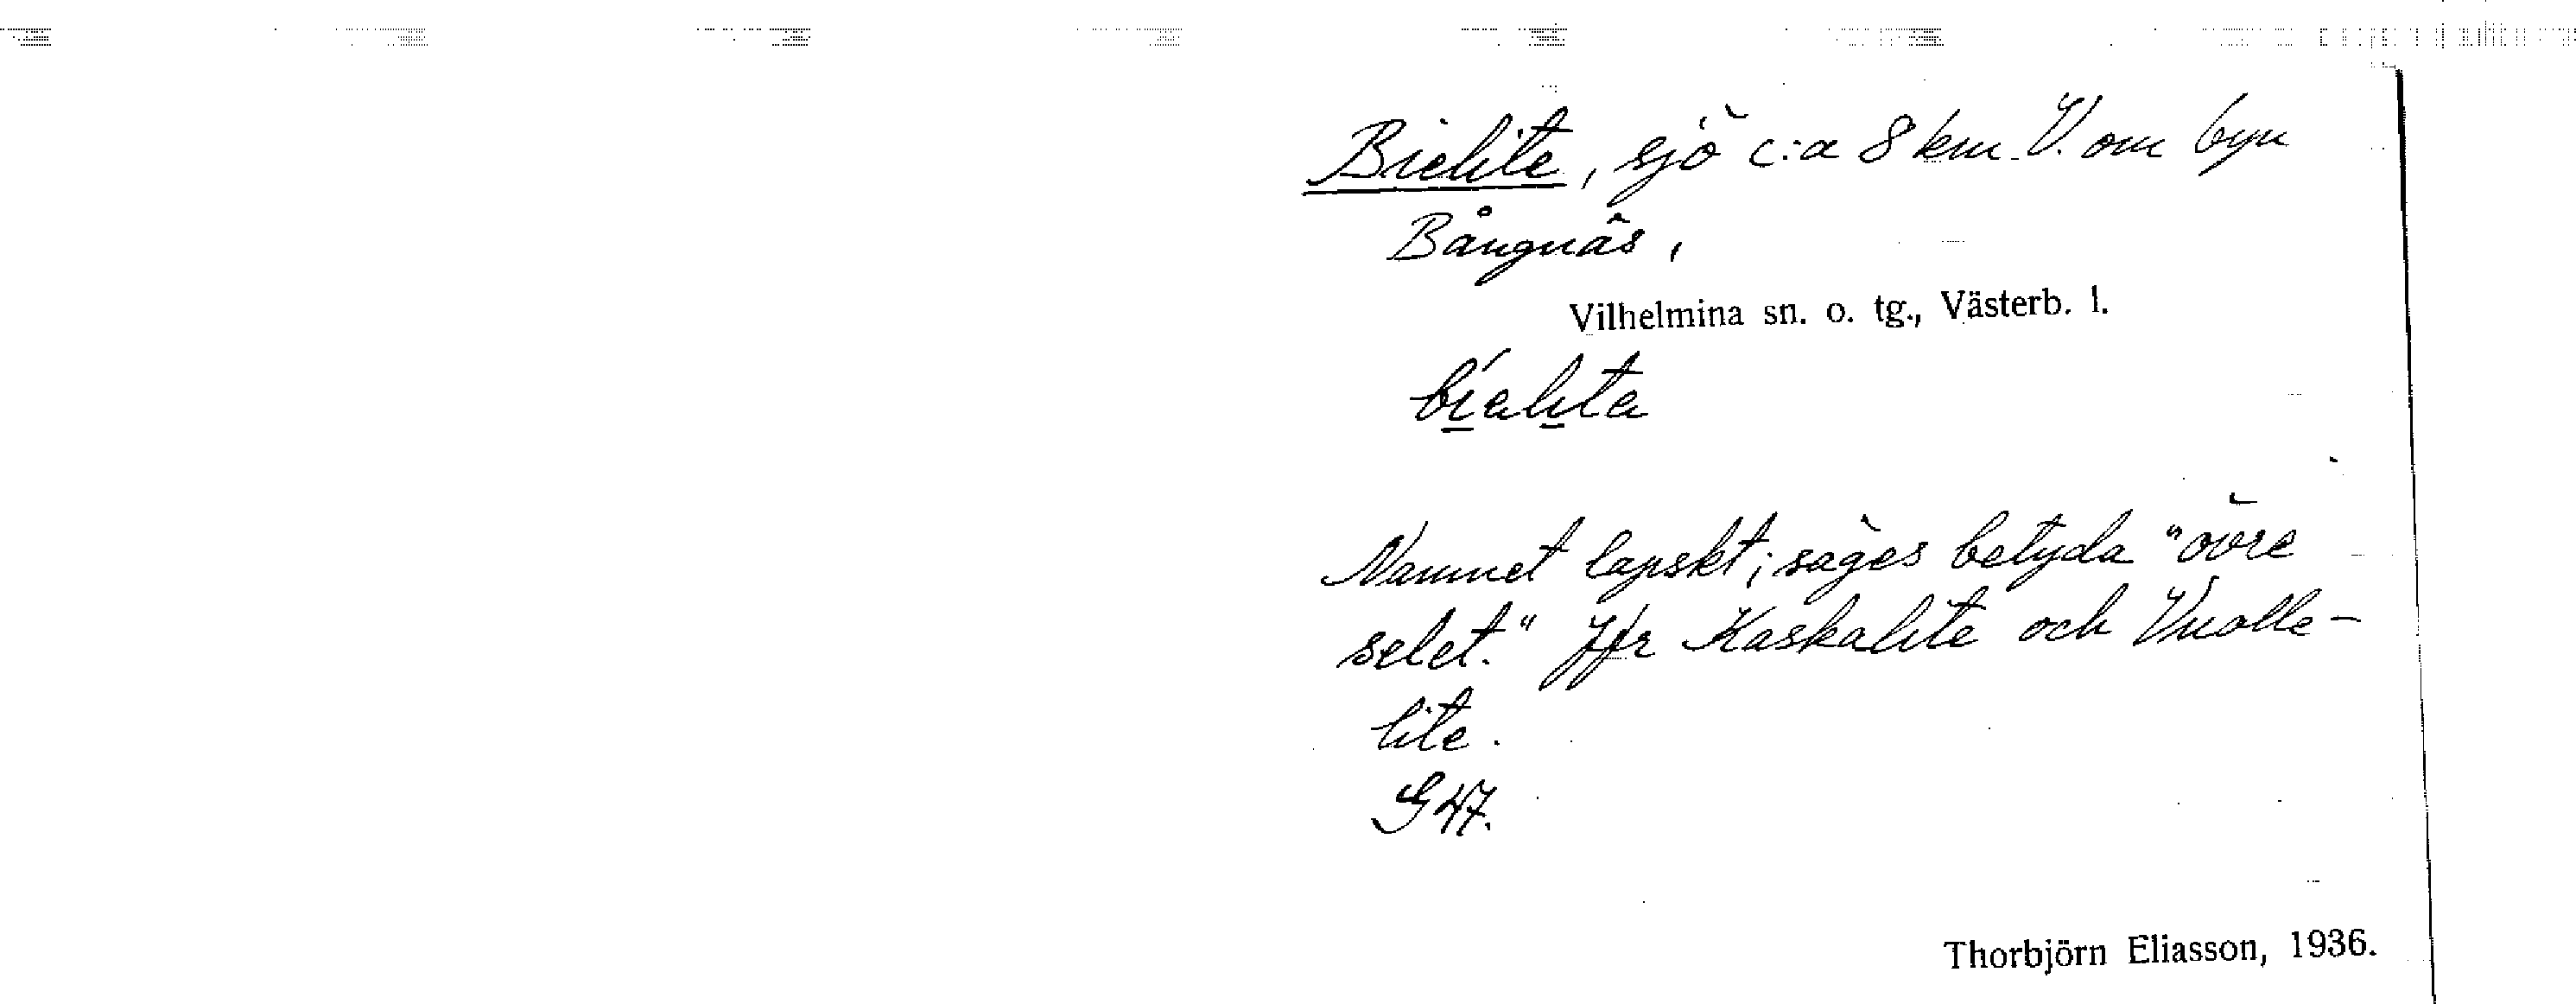 Bielite, sjö c:a 8 km. V. om byn
Bångnäs,
Vilhelmina sn. o. tg., Västerb. l.
bi̲ali̲ta
Namnet lapskt; säges betyda "övre
selet." Jfr Kaskalite och Vualle-
lite.
G47.
Thorbjörn Eliasson, 1936.